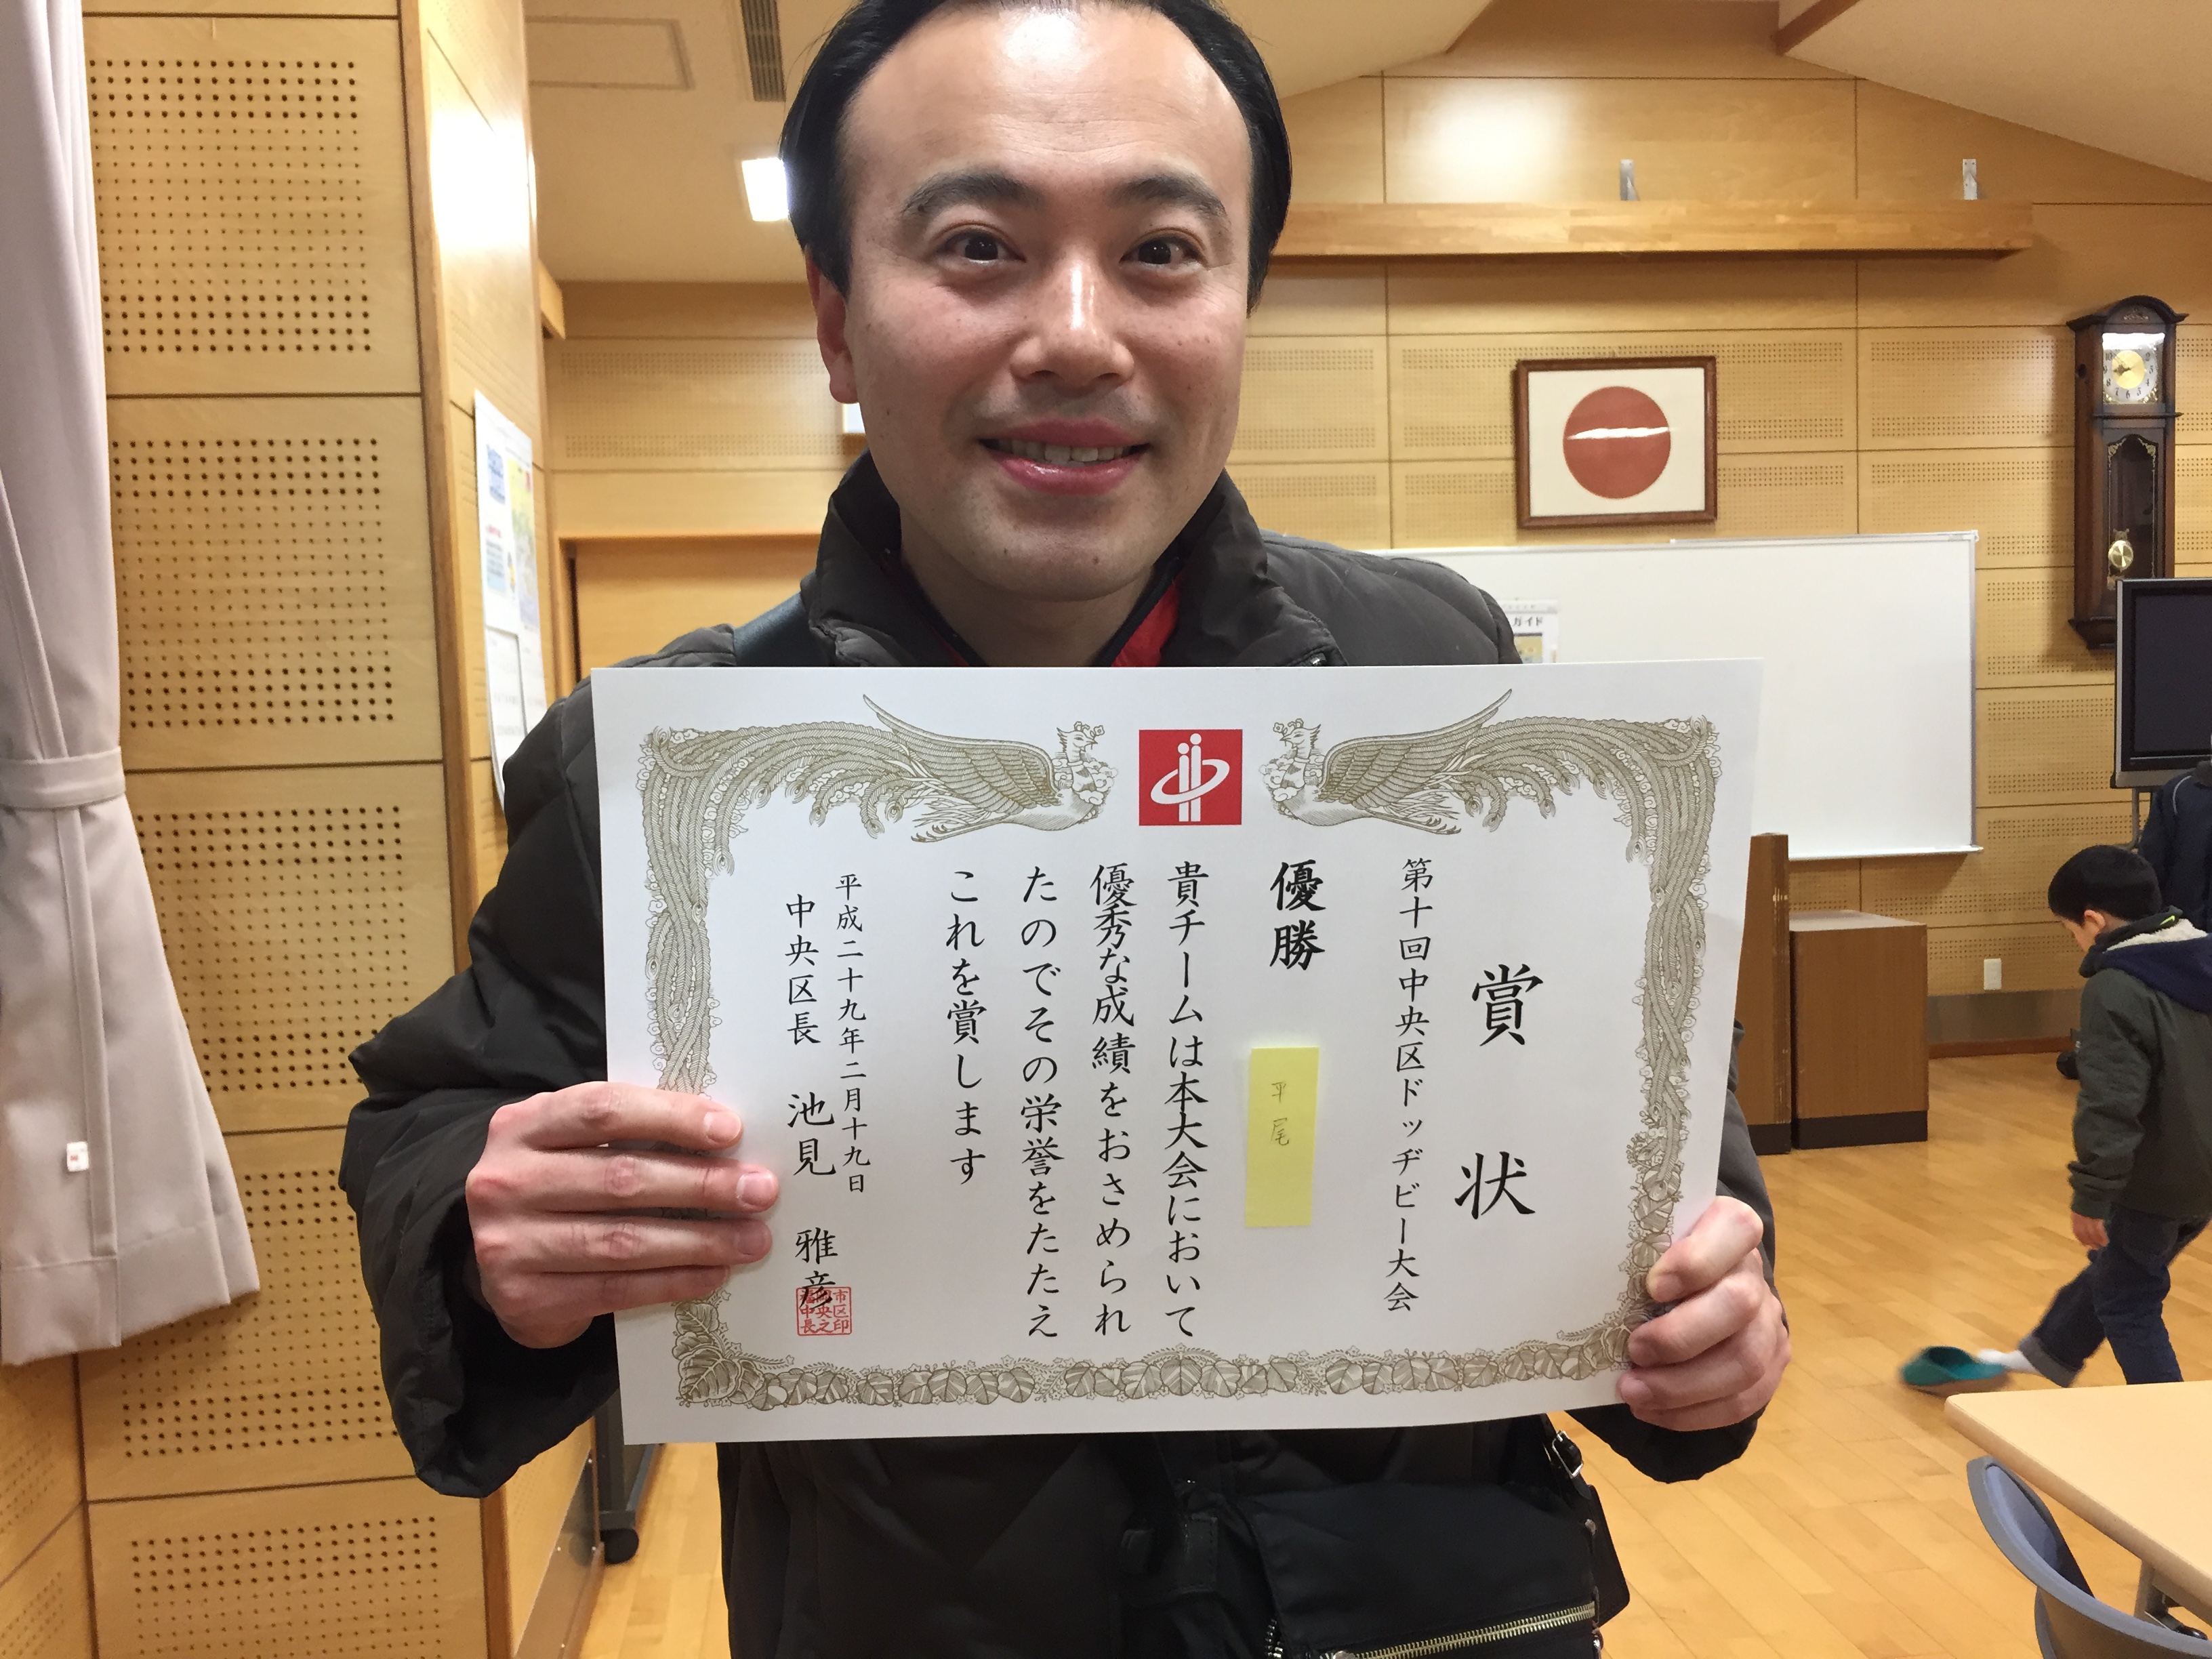 賞状
第十回中央区ドッヂビー大会
優勝
平尾
貴チームは本大会において
優秀な成績をおさめられ
たのでその栄誉をたたえ
これを賞します
平成二十九年二月十九日
中央区長 池見 雅彦
市区印
央之
中長
ガイド